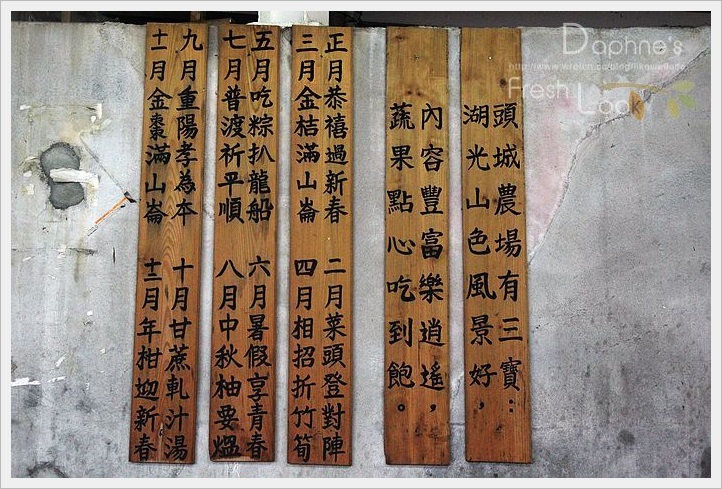 頭城農場有三寶：
湖光山色風景好，
內容豐富樂逍遙，
蔬果點心吃到飽。
正月恭禧過新春 二月菜頭登對陣
三月金桔滿山崙 四月相招折竹筍
五月吃粽扒龍船 六月暑假享青春
七月普渡祈平順 八月中秋柚要熅
九月重陽孝為本 十月甘蔗軋汁湯
十一月金棗滿山崙 十二月年柑迎新春
Daphne's
Fresh Look